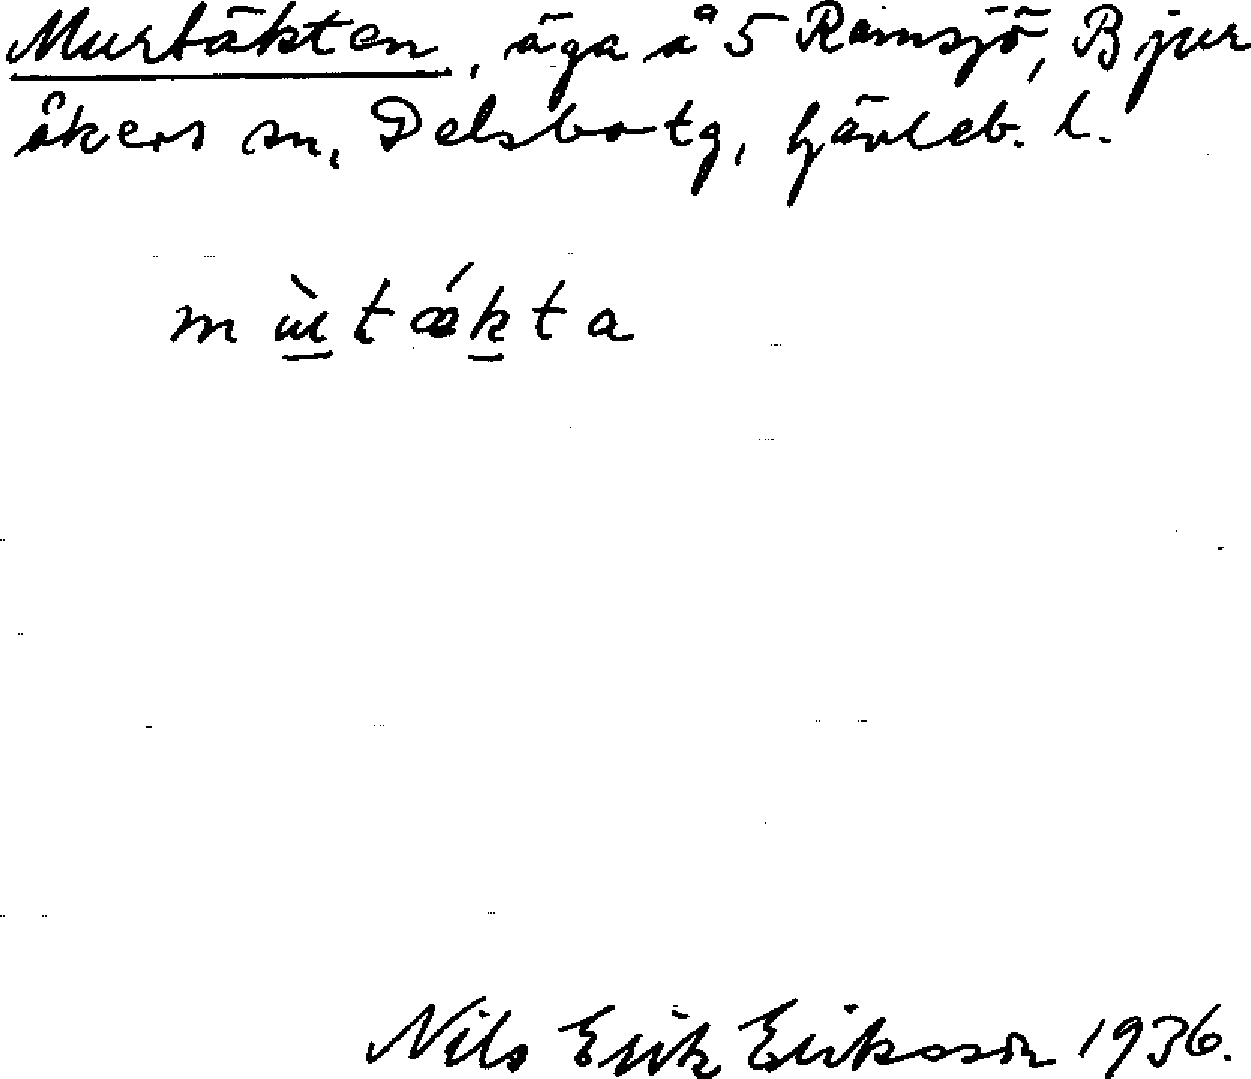 Murtäkten, äga å 5 Ramsjö, Bjur
åkers sn, Delsbo tg, Gävleb. l.
mùtǽkta
Nils Erik Eriksson 1936.